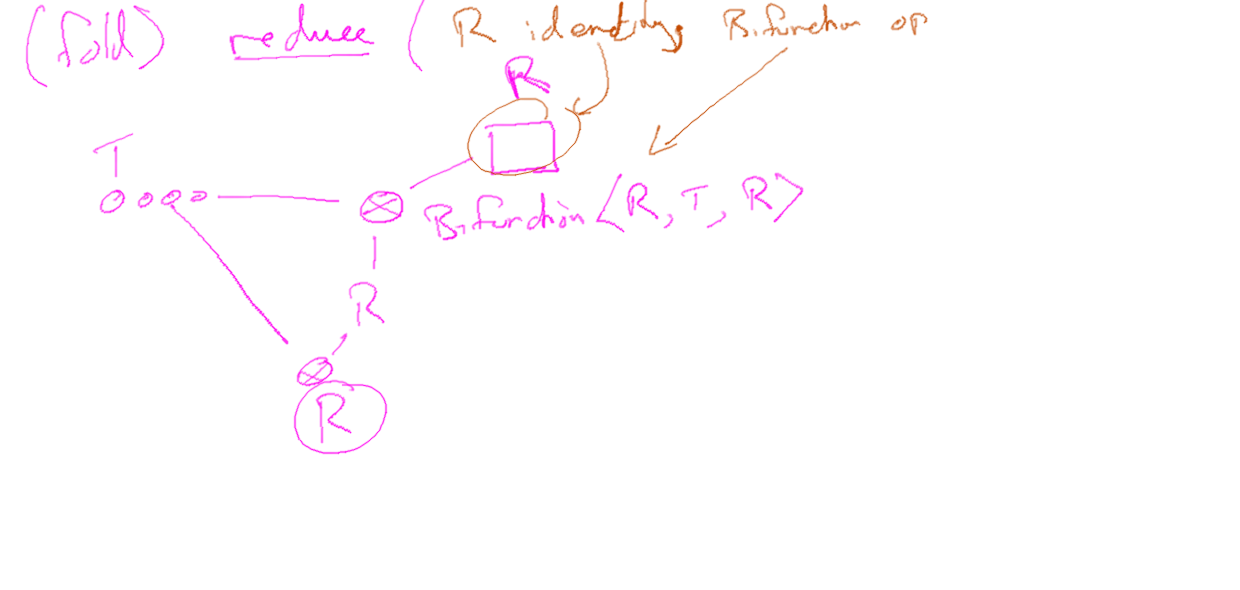 (fold) reduce ( R identity Bifunction op
R
T
Bifunction <R, T, R>
R
R